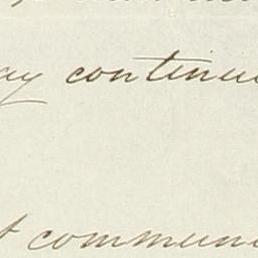 ay continu
t commun